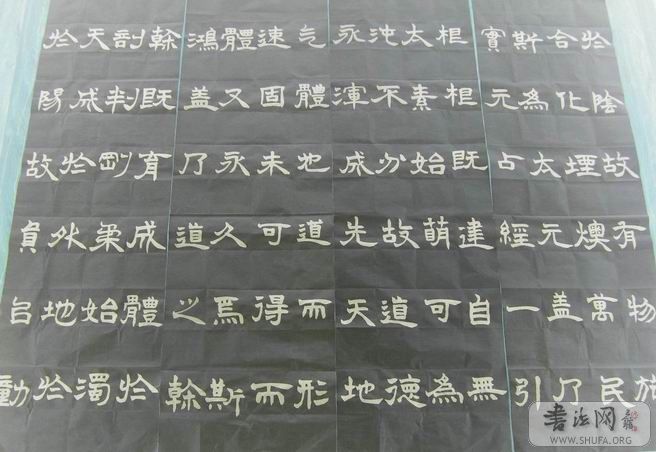 於陰故有物
合化堙燠萬民
斯為太元盖乃
實元占經一引
根根既建自無
太素始萌可為
沌不分故道德
永渾成先天地
气體地道而形
速固未可得而
體又永久焉斯
鴻盖乃道之幹
幹既育成體於
剖判剛柔始濁
天成於外地於
於陽故員 動
書法网
WWW.SHUFA.ORG